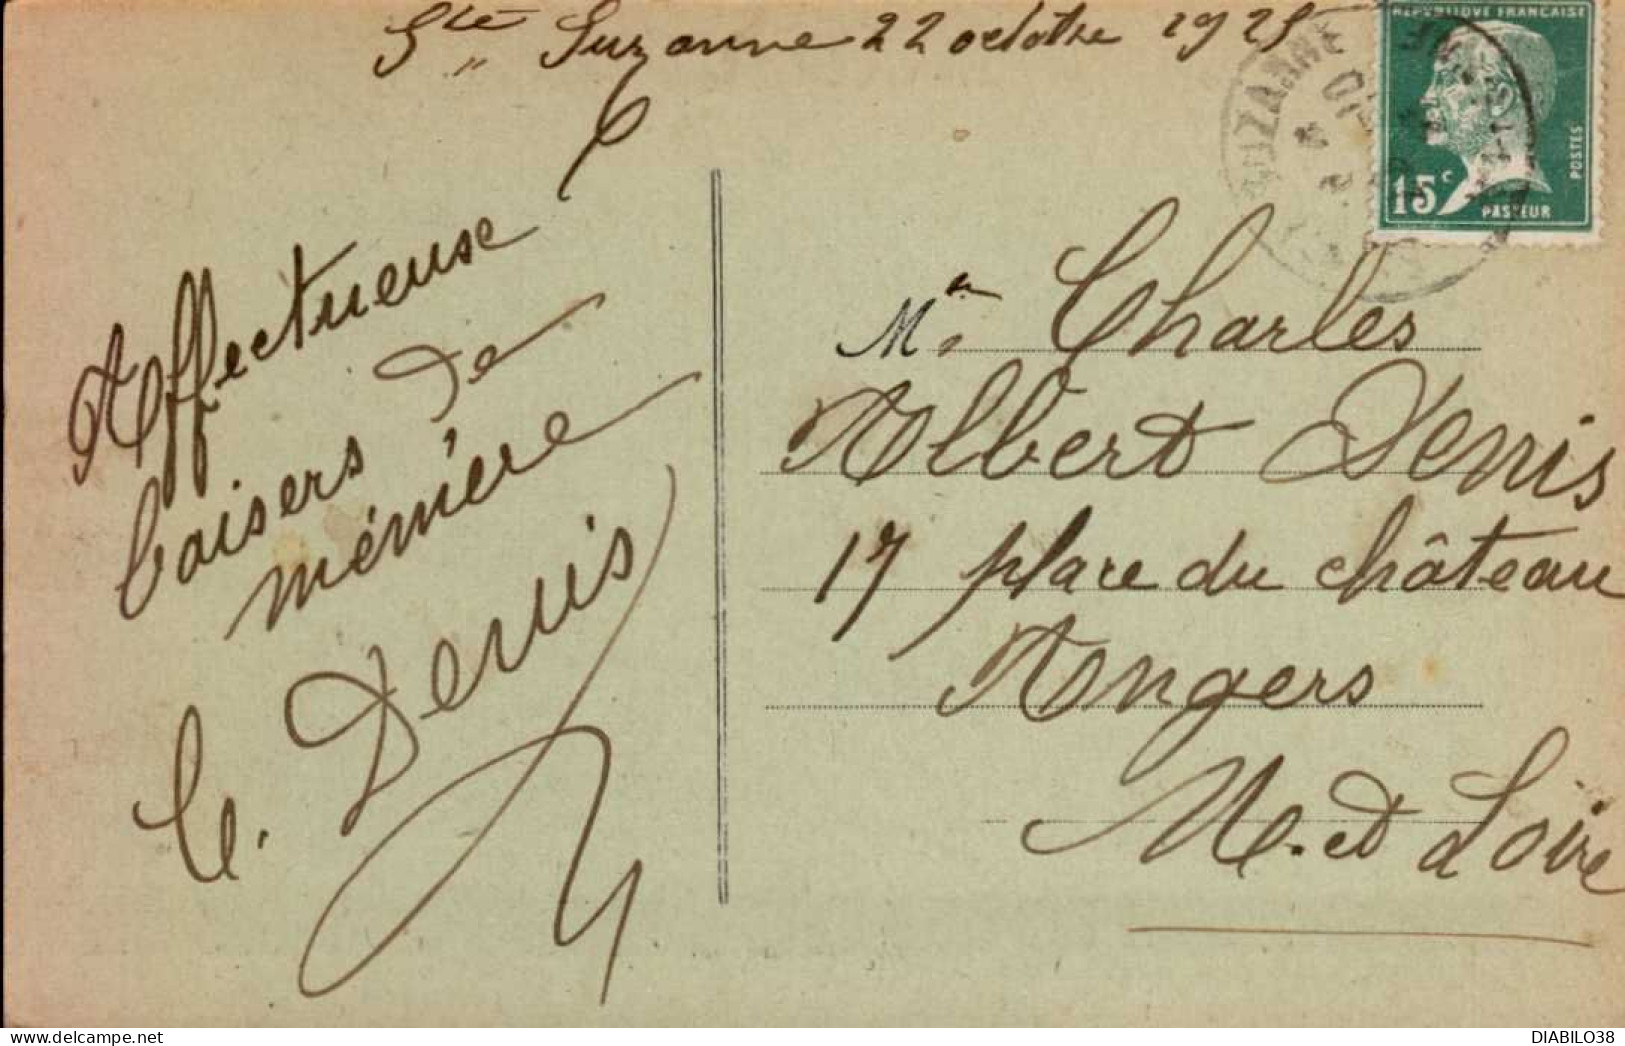 Ste Suzanne 22 octobre 1925
RÉPUBLIQUE FRANÇAISE
POSTES
15c
PASTEUR
UZANNE
Affectueuse
baisers de
mémère
C. Denis
Mr Charles
Albert Denis
17 place du château
Angers
M. et Loire
DIABILO38